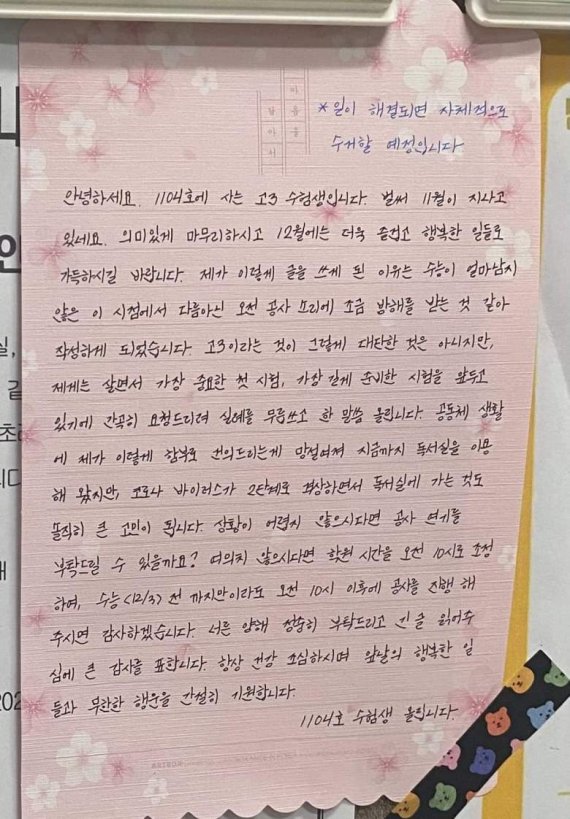 *일이 해결되면 자체적으로
수거할 예정입니다
마음을
담아서
안녕하세요. 1104호에 사는 고3 수험생입니다. 벌써 11월이 지나고
있네요. 의미있게 마무리하시고 12월에는 더욱 즐겁고 행복한 일들로
가득하시길 바랍니다. 제가 이렇게 글을 쓰게 된 이유는 수능이 얼마남지
않은 이 시점에서 다름아닌 오전 공사 소리에 조금 방해를 받는 것 같아
작성하게 되었습니다. 고3이라는 것이 그렇게 대단한 것은 아니지만,
제게는 살면서 가장 중요한 첫 시험, 가장 길게 준비한 시험을 앞두고
있기에 간곡히 요청드리려 실례를 무릅쓰고 한 말씀 올립니다. 공동체 생활
에 제가 이렇게 함부로 건의드리는게 망설여져 지금까지 독서실을 이용
해 왔지만, 코로나 바이러스가 2단계로 격상하면서 독서실에 가는 것도
솔직히 큰 고민이 됩니다. 상황이 어렵지 않으시다면 공사 연기를
부탁드릴 수 있을까요? 여의치 않으시다면 학원 시간을 오전 10시로 조정
하여, 수능(12/3) 전 까지만이라도 오전 10시 이후에 공사를 진행 해
주시면 감사하겠습니다. 너른 양해 정중히 부탁드리고 긴 글 읽어주
심에 큰 감사를 표합니다. 항상 건강 조심하시며 앞날의 행복한 일
들과 무한한 행운을 간절히 기원합니다.
1104호 수험생 올립니다.